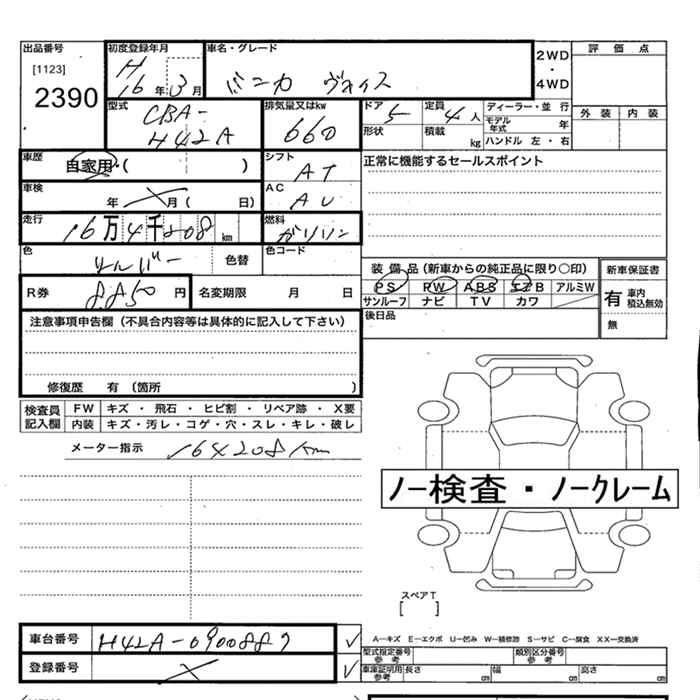 出品番号 初度登録年月 車名・グレード 2WD・4WD 評価点
[1123] H
2390 16年3月 ミニカ ヴォイス
型式 排気量又はkw ドア 定員 ディーラー・並行 外装 内装
CBA- 5 4人 モデル年式 年
H42A 660 形状 積載 kg ハンドル 左・右
車歴 自家用・( ) シフト AT 正常に機能するセールスポイント
車検 年 月( 日) AC
走行 16万4千208km 燃料 ガソリン
色 シルバー 色替 色コード
装備品(新車からの純正品に限り○印) 新車保証書
R券 8850円 名変期限 月 日 PS PW ABS エアB アルミW 有 車内 積込無効
サンルーフ ナビ TV カワ 無
注意事項申告欄(不具合内容等は具体的に記入して下さい) 後日品
修復歴 有(箇所 )
検査員 FW キズ・飛石・ヒビ割・リペア跡・X要
記入欄 内装 キズ・汚レ・コゲ・穴・スレ・キレ・破レ
メーター指示 164208km
ノー検査・ノークレーム
スペアT
[ ]
車台番号 H42A-0900887
A―キズ E―エクボ U―凹み W―補修跡 S―サビ C―腐食 XX―交換済
型式指定番号 参考 類別区分番号 参考
登録番号 車庫証明用 参考 長さ cm 幅 cm 高さ cm